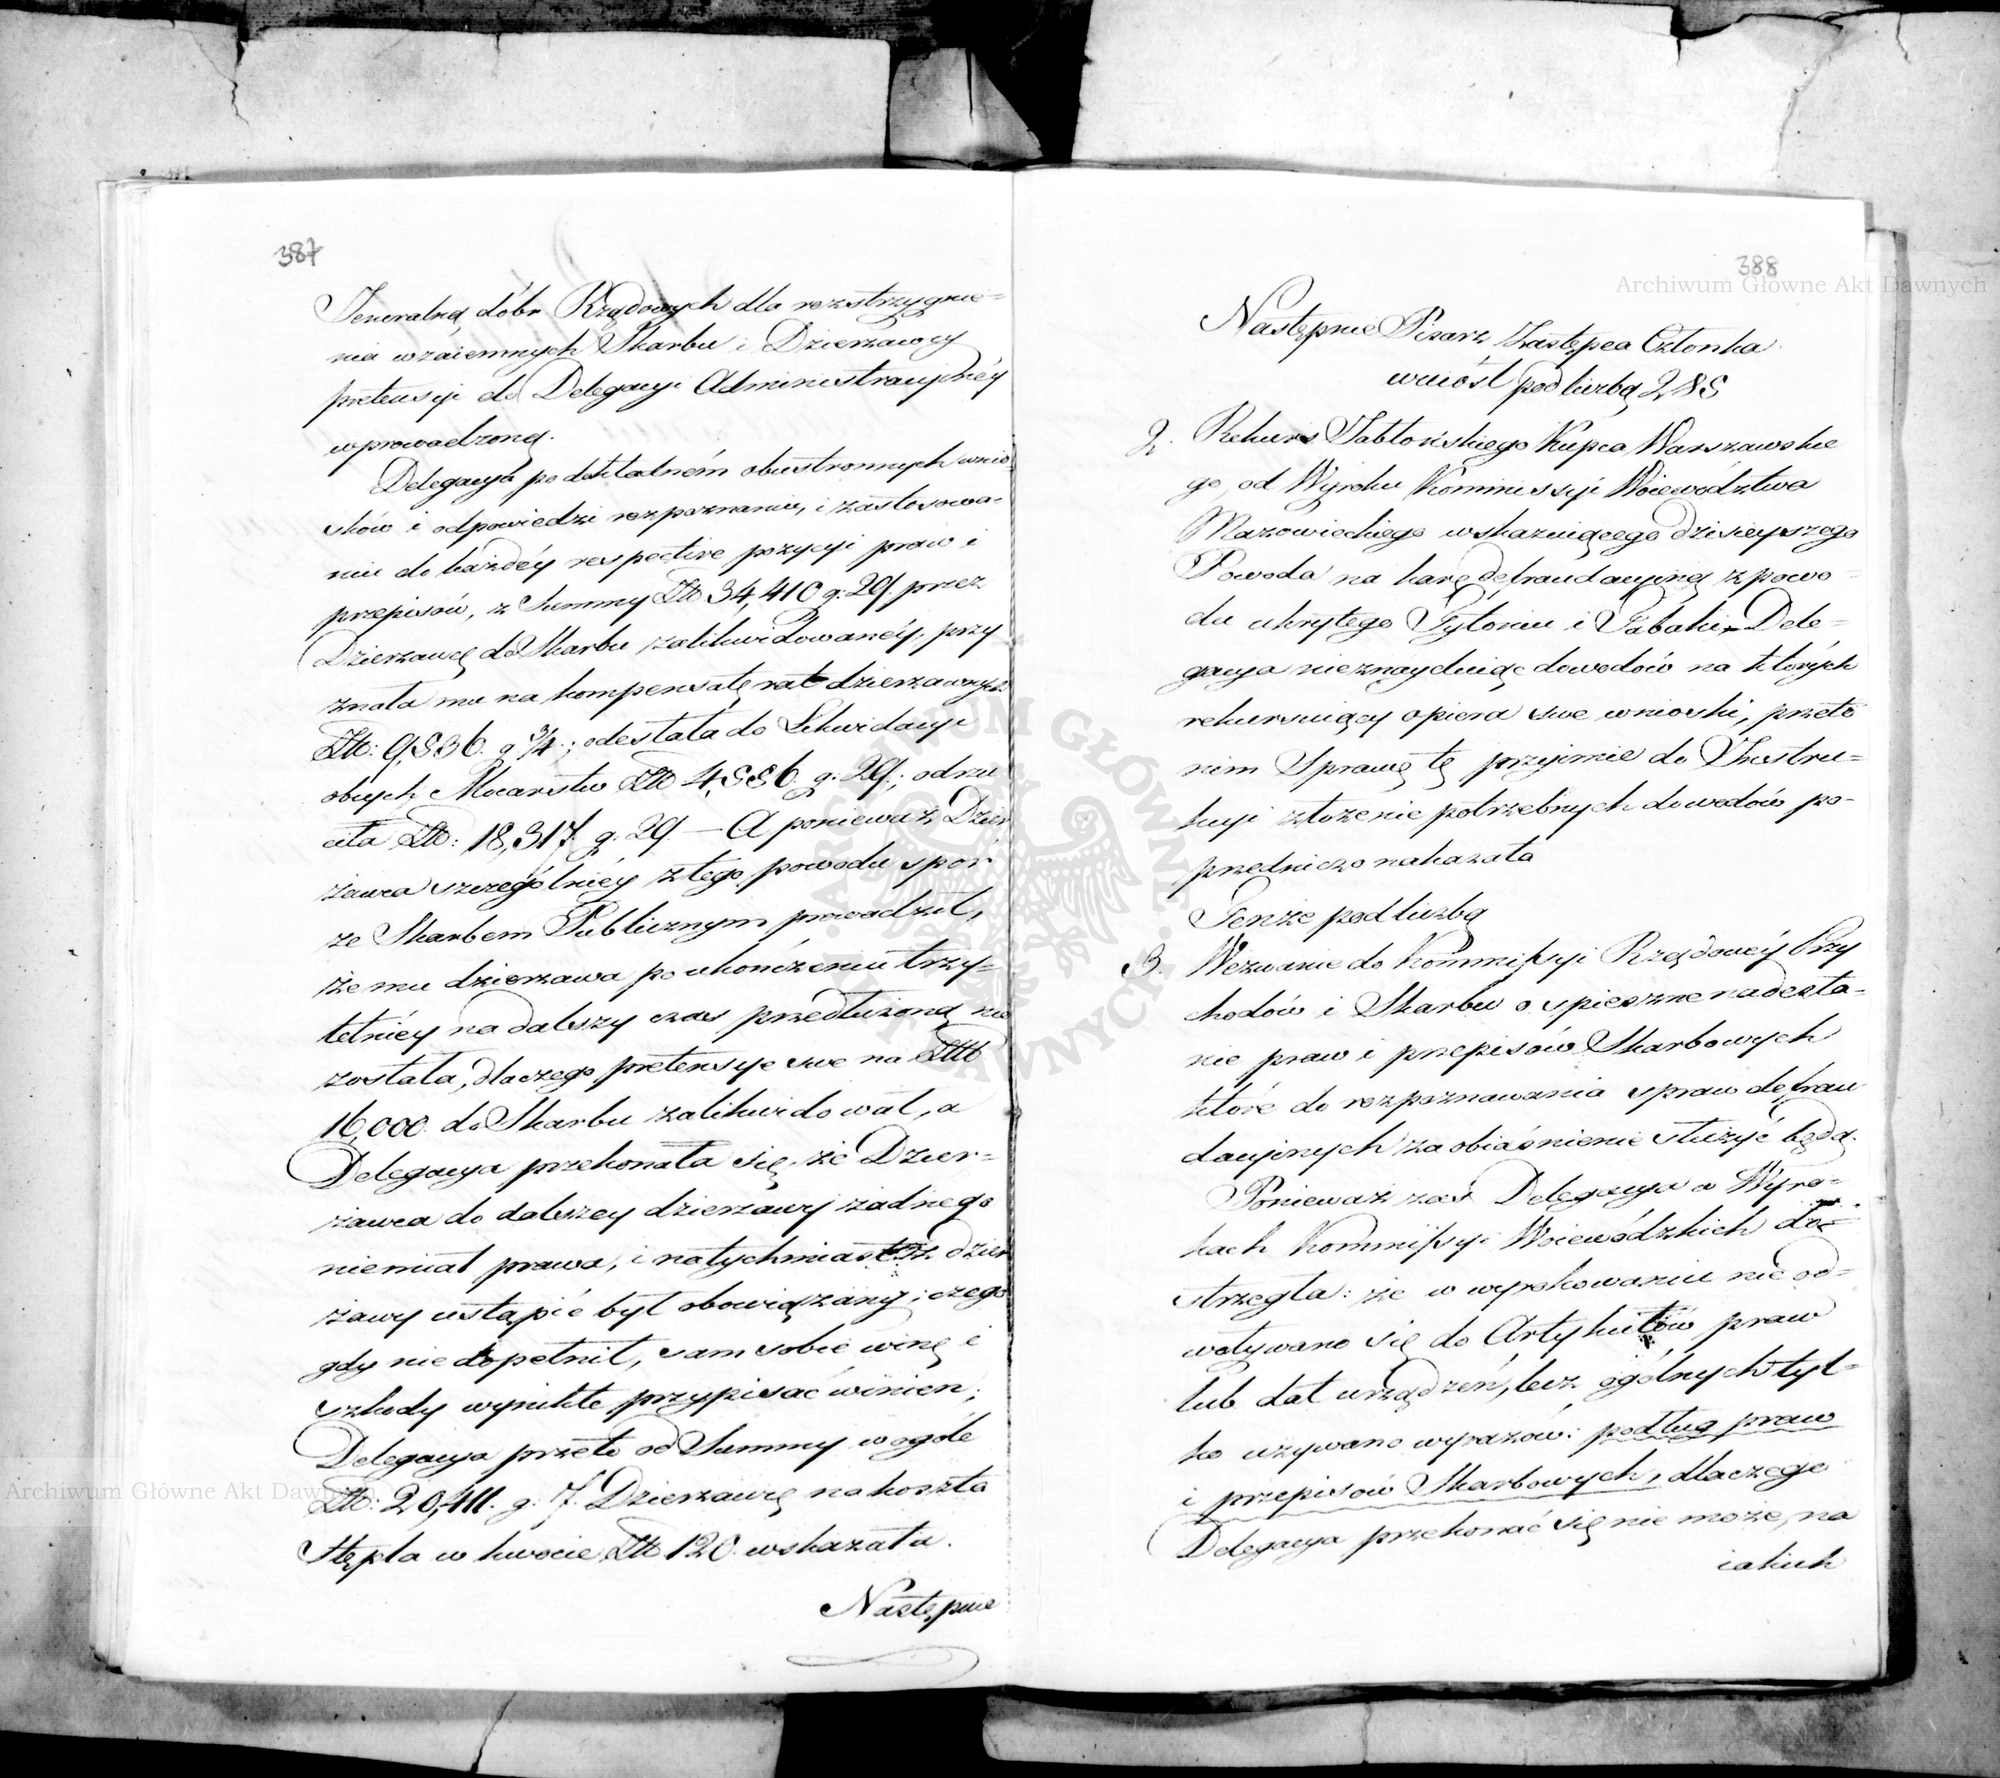 387
Jeneralną dóbr Rządowych dla rozstrzygnie=
nia wzaiemnych Skarbu i Dzierzawcy
pretensyi do Delegacyi Administracyinéy
wprowadzoną.
Delegacya po dokładném obustronnych wnio
sków i odpowiedzi rozpoznaniu, i zastosowa-
niu do każdéy respective pozycyi praw i
przepisów, z Summy Złt 34,410 g: 29. przez
Dzierzawcę do Skarbu zalikwidowanéy, przy
znała mu na kompensatę rat dzierzawnych
Złt: 9,536. g ¾.; odesłała do Likwidacyi
obcych Mocarstw Złt 4,556. g: 29.; odrzu
ciła Złt: 18,317. g: 29. — A ponieważ Dzier
żawca szczególniéy z tego powodu spór
ze Skarbem Publicznym prowadził,
że mu dzierzawa po ukończeniu trzy=
letniéy na dalszy czas przedłużoną nie
została, dlaczego pretensye swe na Złt
16,000. do Skarbu zalikwidował, a
Delegacya przekonała się, że Dzier=
żawca do dalszey dzierzawy żadnego
niemiał prawa, i natychmiast z dzier
żawy ustąpić był obowiązany; czego
gdy nie dopełnił, sam sobie winę i
szkody wynikłe przypisać winien;
Delegacya przeto od Summy w ogóle
Złt: 20,411. g: 7. Dzierzawcę na koszta
Stępla w kwocie Złt 120. wskazała.
Następnie
388
Następnie Pisarz Zastępca Członka
wniósł pod liczbą 285
2. Rekurs Jabłońskiego Kupca Warszawskie
go, od Wyroku Kommissyi Woiewództwa
Mazowieckiego wskazuiącego dzisieyszego
Powoda na karę defraudacyiną z powo=
du ukrytego Tytoniu i Tabaki. Dele=
gacya nieznayduiąc dowodów na których
rekursuiący opiera swe wnioski, przeto
nim Sprawę tę przyimie do Instru=
kcyi złożenie potrzebnych dowodów po-
przedniczo nakazała
Tenże pod liczbą
3. Wezwanie do Kommissyi Rządowéy Przy
chodów i Skarbu o spieszne nadesła=
nie praw i przepisów Skarbowych
które do rozpoznawania spraw defrau
dacyinych za obiaśnienie służyć będą.
Ponieważ zaś Delegacya w Wyro=
kach Kommissyi Woiewódzkich do=
strzegła: że w wyrokowaniu nie od=
woływano się do Artykułów praw
lub dat urządzeń, lecz ogólnych tyl=
ko używano wyrazów: podług praw
i przepisów Skarbowych, dlaczego
Delegacya przekonać się nie może, na
iakich
Archiwum Główne Akt Dawnych
Archiwum Główne Akt Dawnych
ARCHIWUM GŁÓWNE AKT DAWNYCH